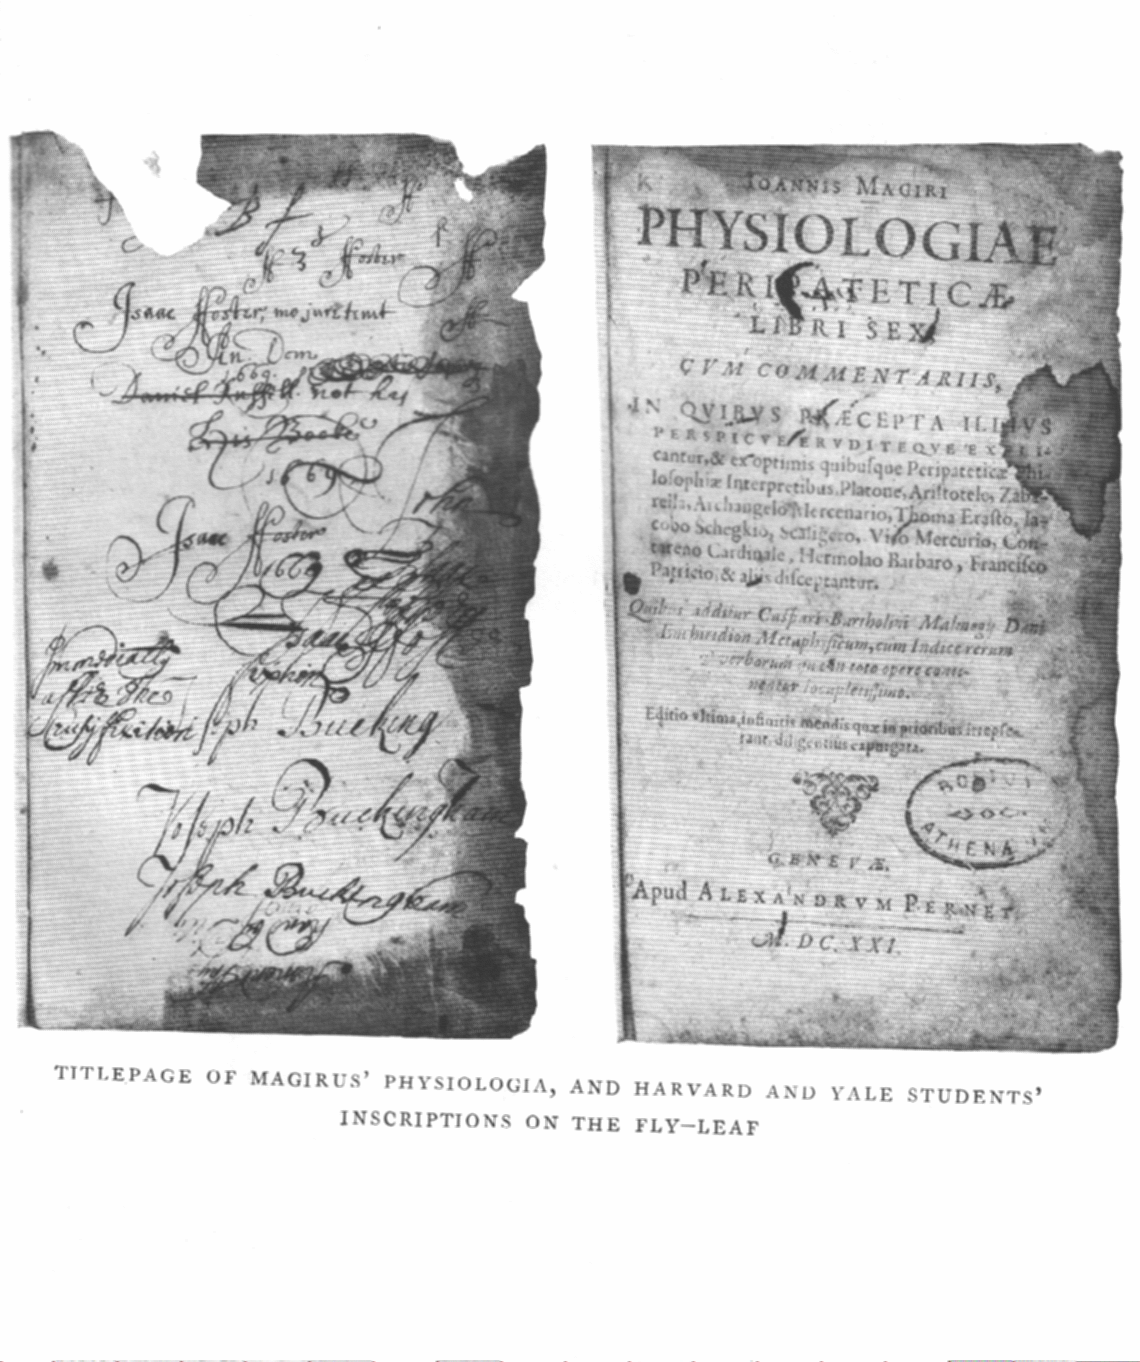 B f
H 3 ffoster
Isaac ffoster; me jure tenet
An. Dom
1669.
Daniel Russell not his
his Booke
1669
Isaac ffoster
1669
Isaac ffoster
Immediatly
after the
Crusyfixition
seph Bucking
Joseph Buckingham
Joseph Buckingham
IOANNIS MAGIRI
PHYSIOLOGIAE
PERIPATETICÆ
LIBRI SEX
CVM COMMENTARIIS,
IN QVIBVS PRÆCEPTA ILLIVS
PERSPICVE ERVDITEQVE EXPLI-
cantur, & ex optimis quibuſque Peripateticæ Phi-
loſophiæ Interpretibus, Platone, Ariſtotele, Zaba-
rella, Archangelo Mercenario, Thoma Eraſto, Ia-
cobo Schegkio, Scaligero, Vi&o Mercurio, Con-
tareno Cardinale, Hermolao Barbaro, Franciſco
Patricio, & aliis diſceptantur.
Quibus additur Caſpari Bartholini Malmogy Dani
Enchiridion Metaphyſicum, cum Indice rerum
& verborum in toto opere conti-
nentur locupletiſſimo.
Editio vltima, infinitis mendis quæ in prioribus irrepſe-
rant, diligentius expurgata.
ATHENA
GENEVÆ,
Apud ALEXANDRVM PERNET,
M. DC. XXI.
TITLEPAGE OF MAGIRUS' PHYSIOLOGIA, AND HARVARD AND YALE STUDENTS'
INSCRIPTIONS ON THE FLY—LEAF